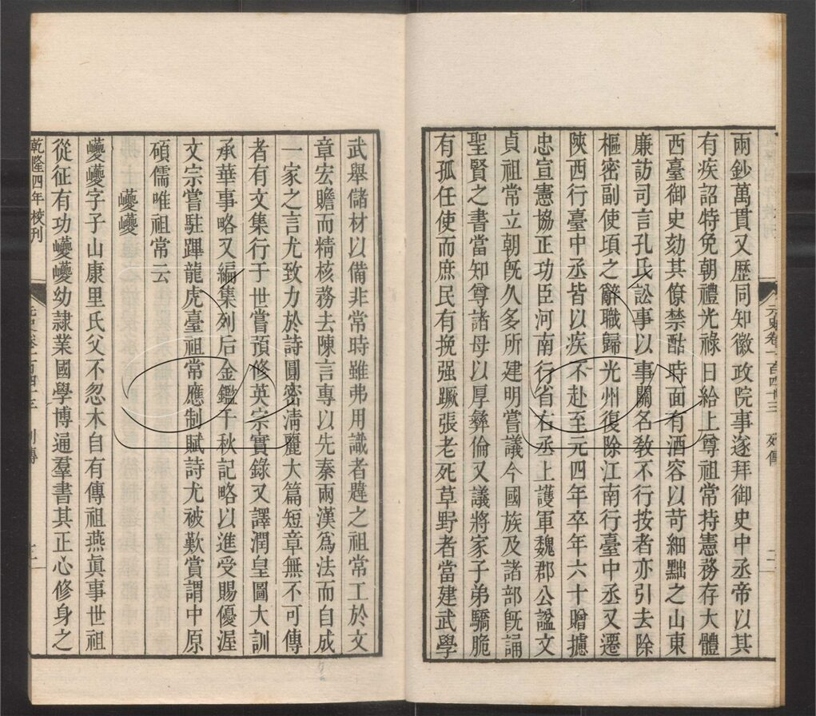 兩鈔萬貫又歷同知徽政院事遂拜御史中丞帝以其
有疾詔特免朝禮光祿日給上尊祖常持憲務存大體
西臺御史劾其僚禁酤時面有酒容以苛細黜之山東
廉訪司言孔氏訟事以事關名敎不行按者亦引去除
樞密副使頃之辭職歸光州復除江南行臺中丞又遷
陝西行臺中丞皆以疾不赴至元四年卒年六十贈攄
忠宣憲協正功臣河南行省右丞上護軍魏郡公諡文
貞祖常立朝旣久多所建明嘗議今國族及諸部旣誦
聖賢之書當知尊諸母以厚彝倫又議將家子弟驕脆
有孤任使而庶民有挽强蹶張老死草野者當建武學
元史卷一百四十三 列傳 二
武舉儲材以備非常時雖弗用識者韙之祖常工於文
章宏贍而精核務去陳言專以先秦兩漢爲法而自成
一家之言尤致力於詩圓密淸麗大篇短章無不可傳
者有文集行于世嘗預修英宗實錄又譯潤皇圖大訓
承華事略又編集列后金鑑千秋記略以進受賜優渥
文宗嘗駐蹕龍虎臺祖常應制賦詩尤被歎賞謂中原
碩儒唯祖常云
巎巎
巎巎字子山康里氏父不忽木自有傳祖燕眞事世祖
從征有功巎巎幼隸業國學博通羣書其正心修身之
乾隆四年校刊 元史卷一百四十三 列傳